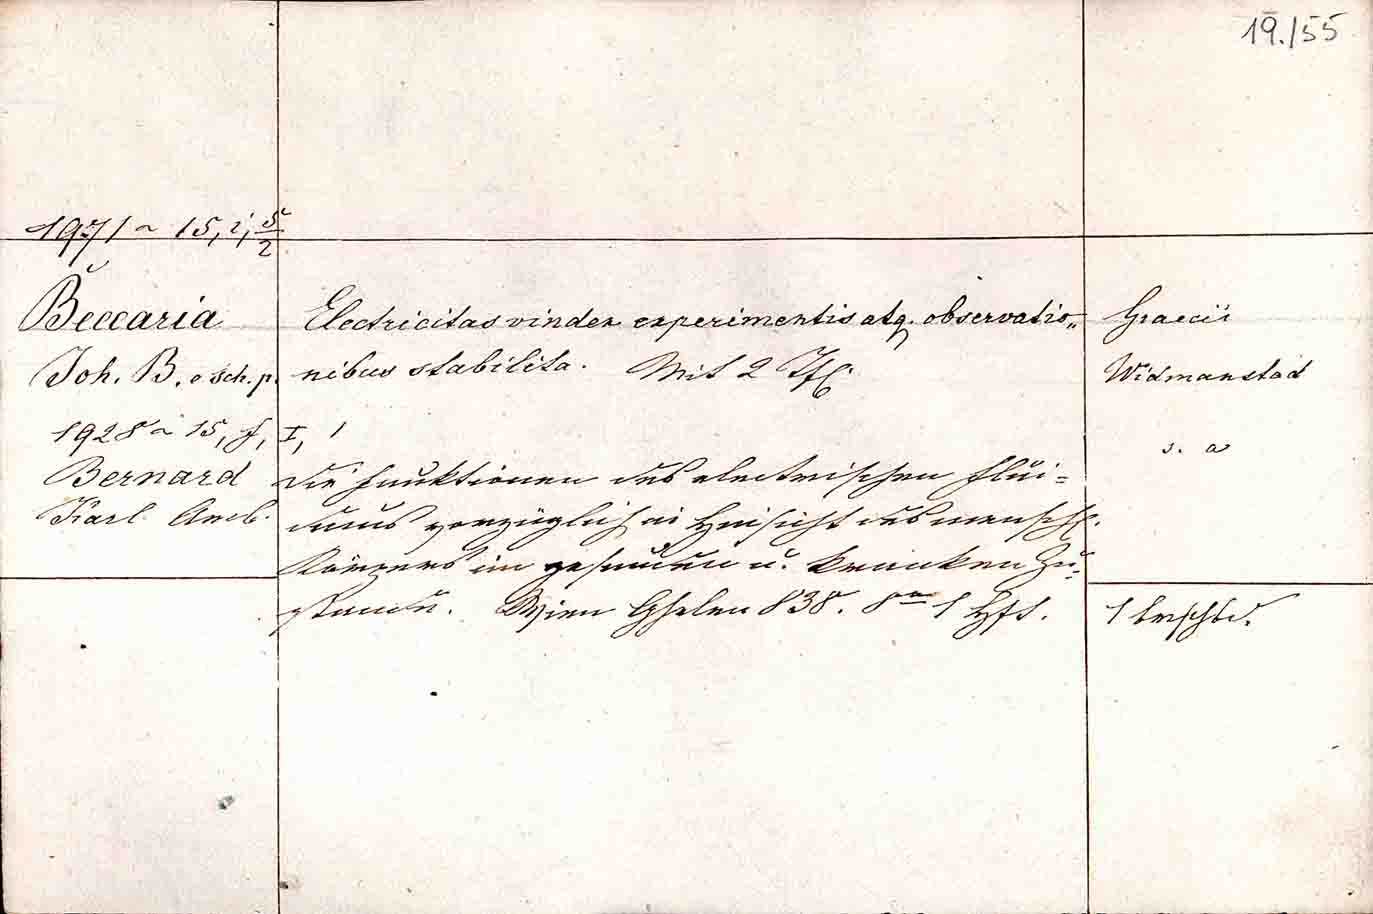 19./55
1971 ~ 15, i, 5/2
Beccaria
Joh. B. e sch. p.
Electricitas vindex experimentis atq. observatio„
nibus stabilita. Mit 2 Tfl.
Graecii
Widmanstad
s. a
1928 ~ 15, f, I, 1
Bernard
Karl Amb.
Die Funktionen des electrischen Flui=
dums vorzüglich in Hinsicht des menschl.
Körpers im gesunden u. kranken Zu=
stande. Wien Ghelen 838. 8° 1 Hft.
1 brschbd.